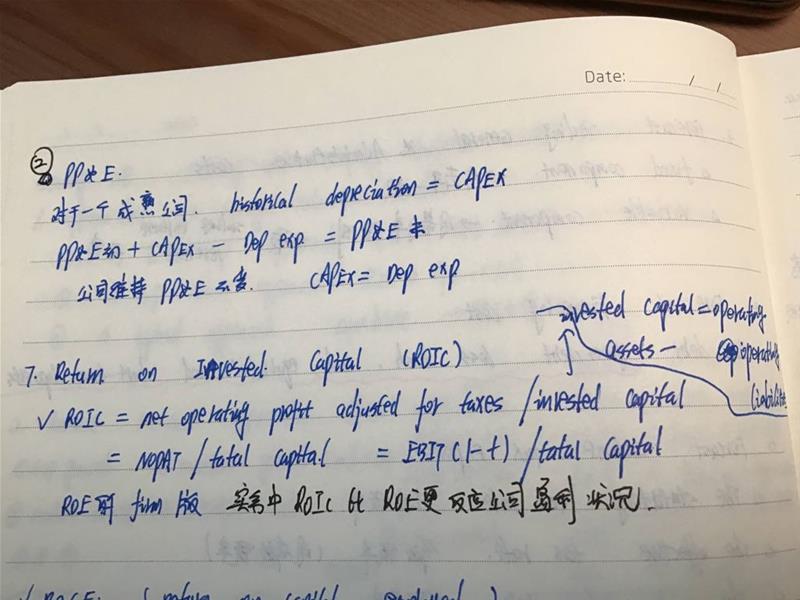 Date: / /
② PP&E.
对于一个成熟公司. historical depreciation = CAPEX
PP&E初 + CAPEX - Dep exp = PP&E末
公司维持 PP&E 不变. CAPEX = Dep exp
invested capital = operating
assets - operating
liabilities
7. Return on Invested Capital (ROIC)
✓ ROIC = net operating profit adjusted for taxes / invested capital
= NOPAT / total capital = EBIT (1-t) / total capital
ROE的 firm 版 实务中 ROIC 比 ROE更反应公司盈利状况.